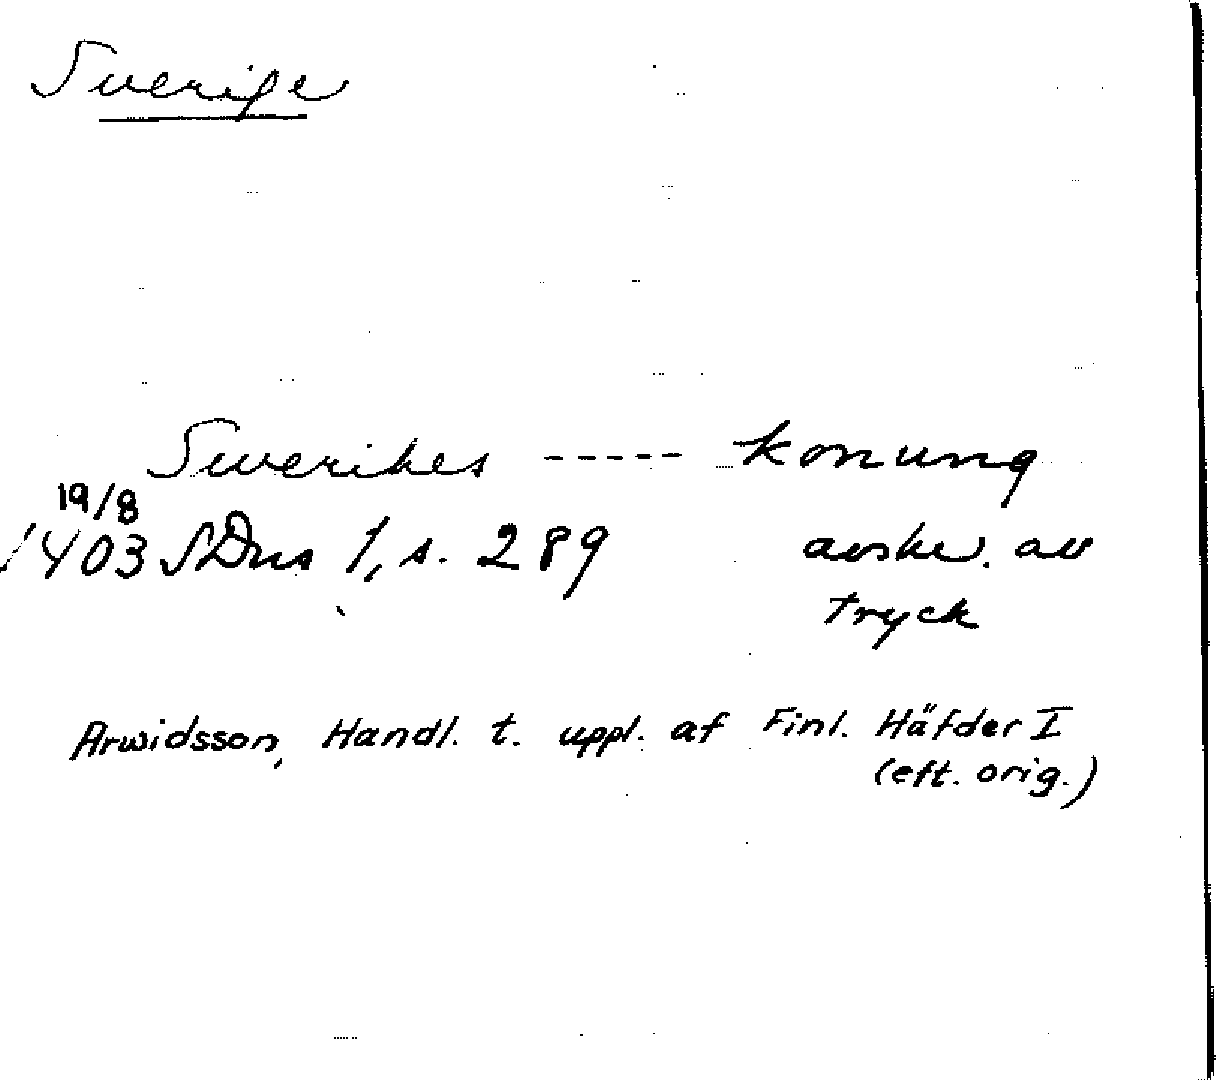 Sverige
Swerikes ----- konung
19/8
1403 SDns 1, s. 289 avskr. av
tryck
Arwidsson, Handl. t. uppl. af Finl. Häfder I
(eft. orig.)